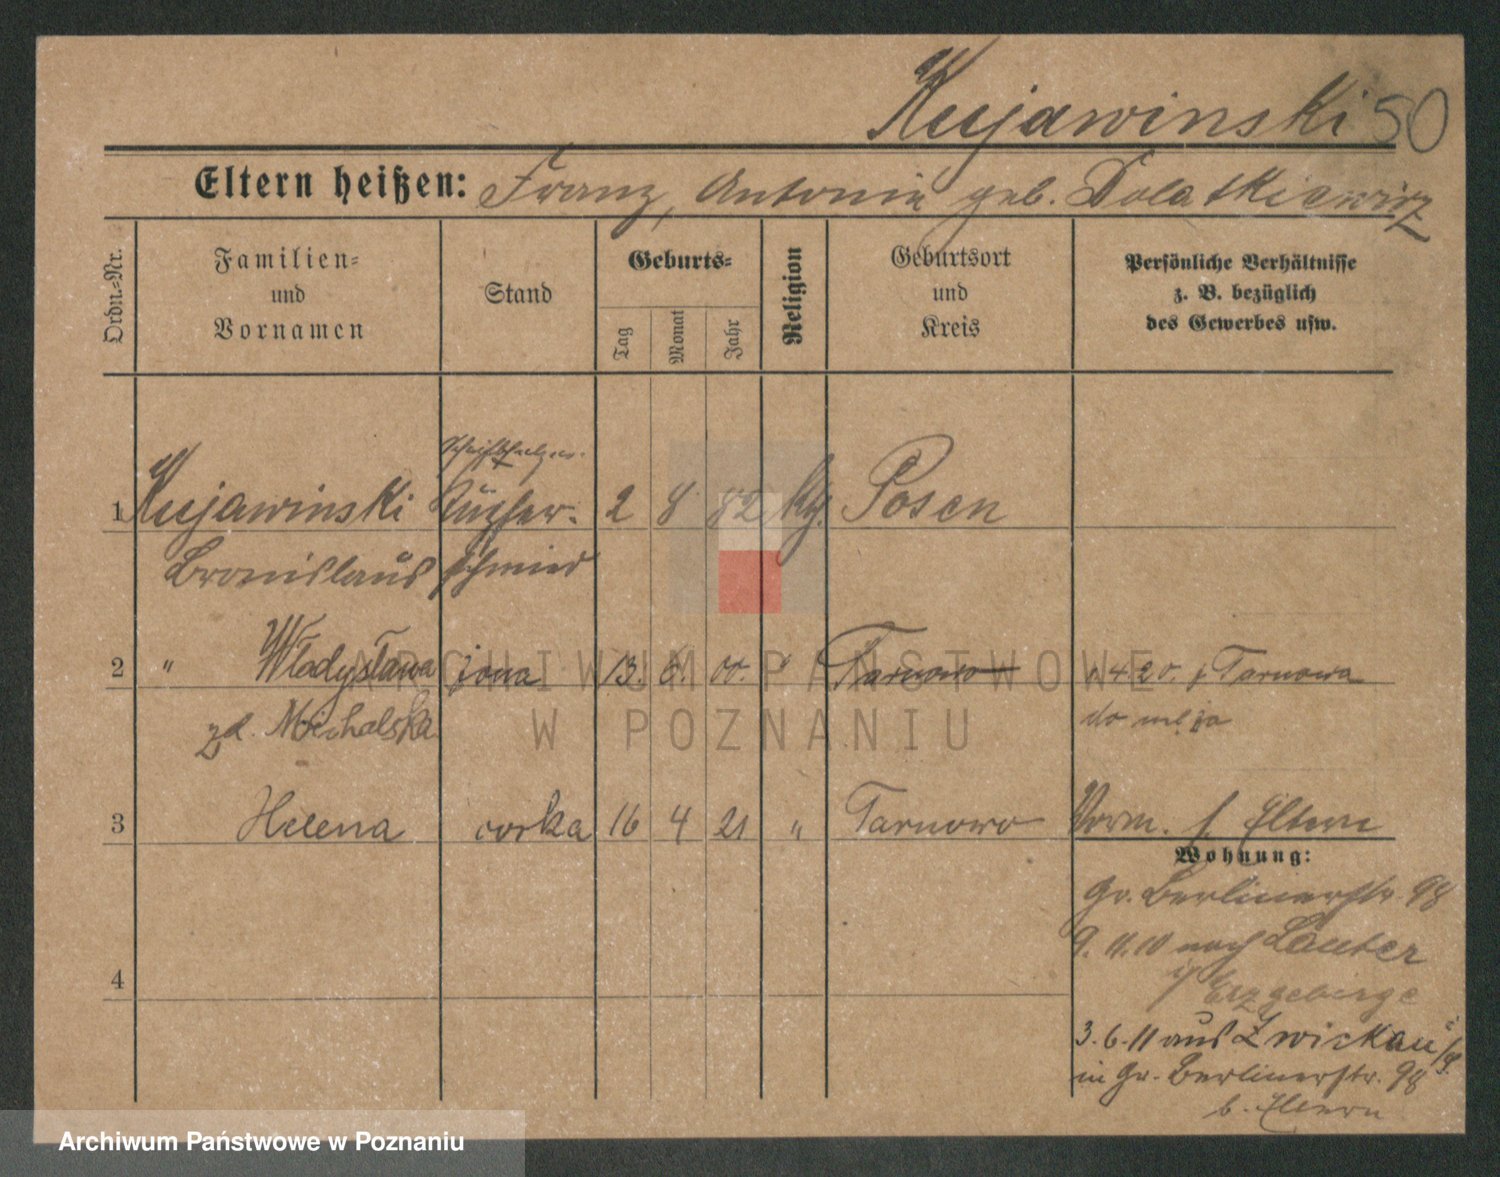 Kujawinski 50
Eltern heißen: Franz, Antonie geb. Dolatkiewicz
Ordn.=Nr.
Familien= und Vornamen
Stand
Geburts=
Tag
Monat
Jahr
Religion
Geburtsort und Kreis
Persönliche Verhältnisse
z. B. bezüglich
des Gewerbes usw.
1 Kujawinski 2 8 82 Posen
Bronislaus schmied
2 " Władysława żona 13. 6. 00. " Tarnowo 4.20. z Tarnowa
zd. Michalska do męża
3 Helena corka 16 4 21 " Tarnowo Vorm. s. Eltern
Wohnung:
Gr. Berlinerstr. 98
9. 11. 10 nach Lauter
i/ Erzgebirge
4
3. 6. 11 aus Zwickau i/S.
in Gr. Berlinerstr. 98
b. Eltern
ARCHIWUM PAŃSTWOWE
W POZNANIU
Archiwum Państwowe w Poznaniu